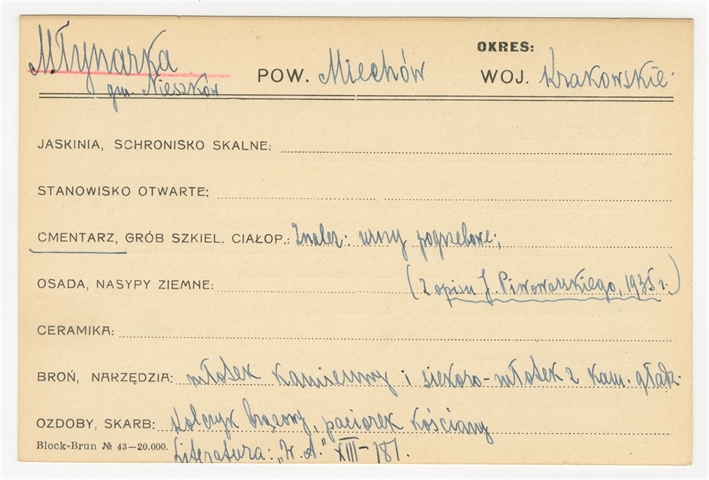 OKRES:
Młynarka POW. Miechów WOJ. Krakowskie
gm. Nieszków
JASKINIA, SCHRONISKO SKALNE:
STANOWISKO OTWARTE:
CMENTARZ, GRÓB SZKIEL. CIAŁOP.: Znalez: urny pogrzebowe;
OSADA, NASYPY ZIEMNE: (Z opisu J. Piwowarskiego, 1935 r.)
CERAMIKA:
BROŃ, NARZĘDZIA: młotek kamienny i siekiero-młotek z kam. gładz.
OZDOBY, SKARB: Kolczyk brązowy, paciorek kościany
Block-Brun № 43–20.000. Literatura: „W. A." XIII – 181.